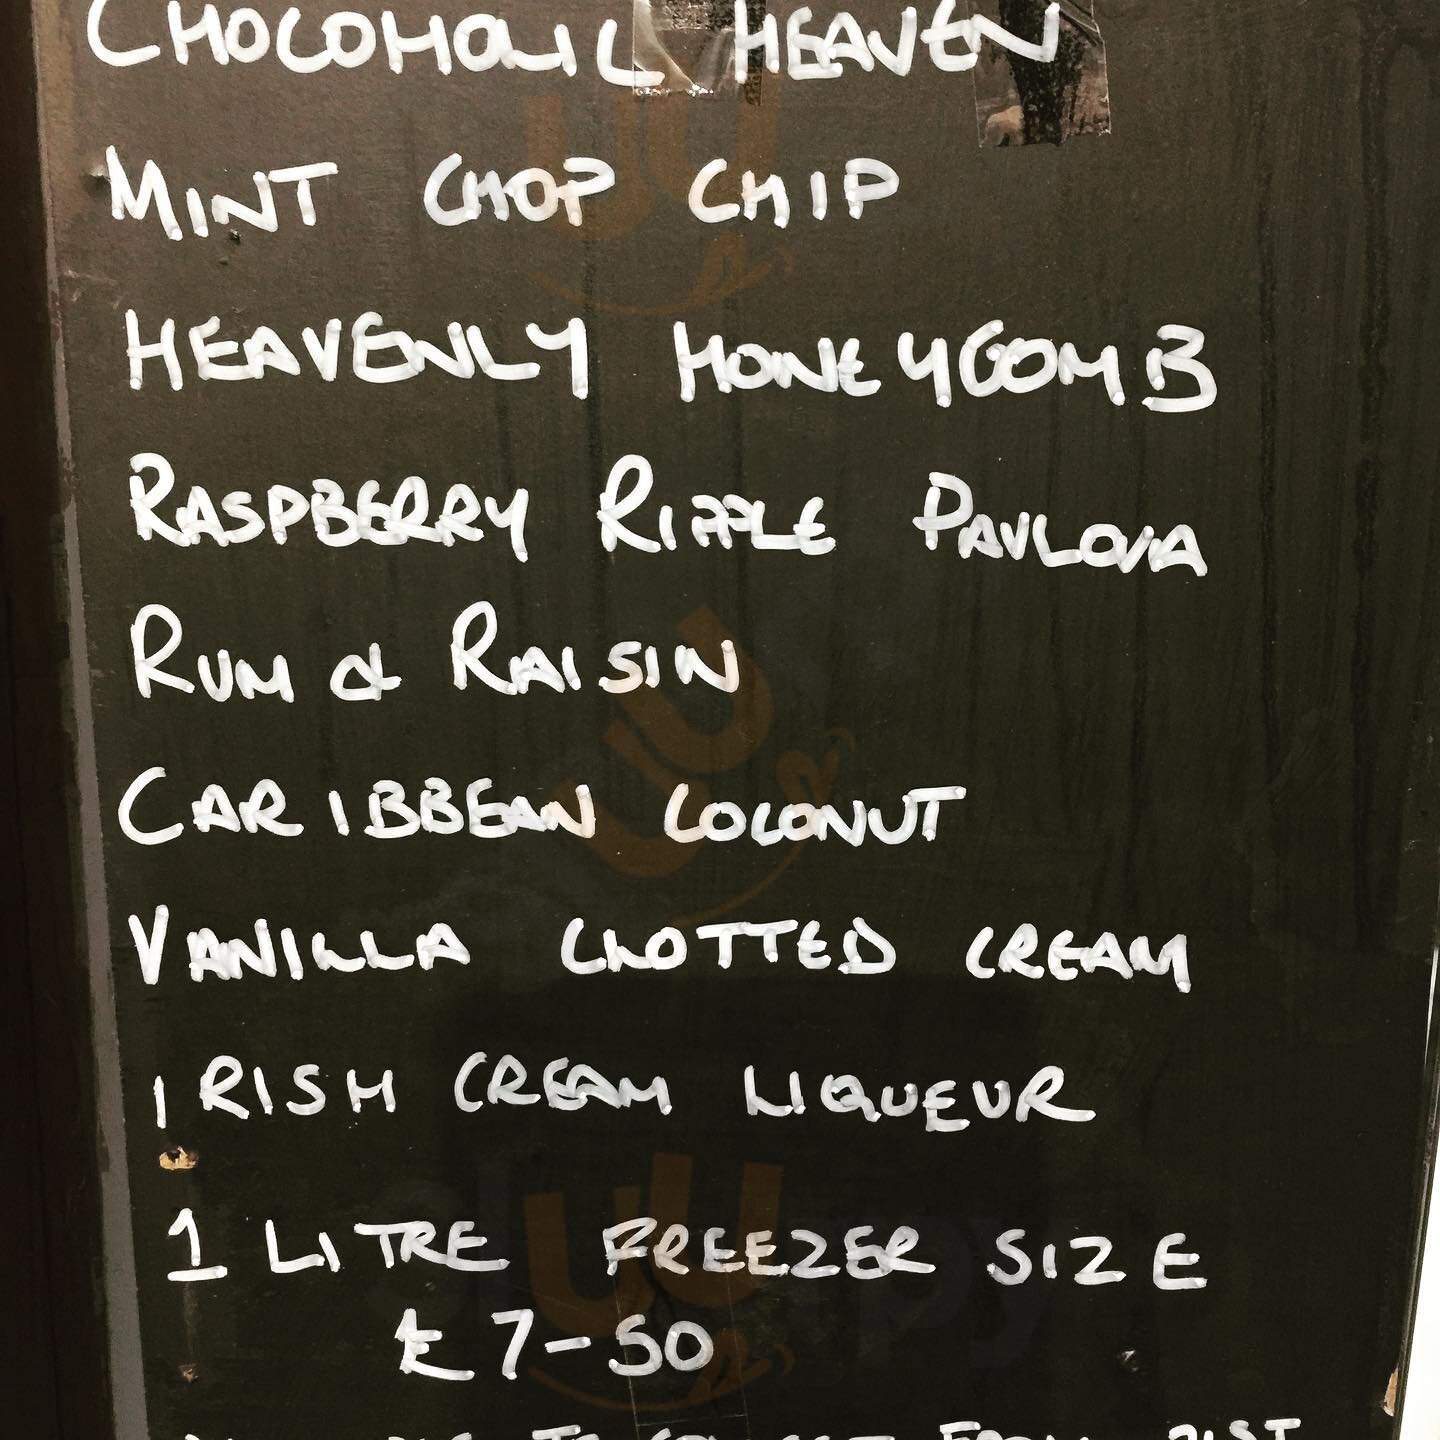 CHOCOHOLIC HEAVEN
MINT CHOP CHIP
HEAVENLY HONEYCOMB
RASPBERRY RIPPLE PAVLOVA
RUM & RAISIN
CARIBBEAN COCONUT
VANILLA CLOTTED CREAM
IRISH CREAM LIQUEUR
1 LITRE FREEZER SIZE
£7-50
sluurpy